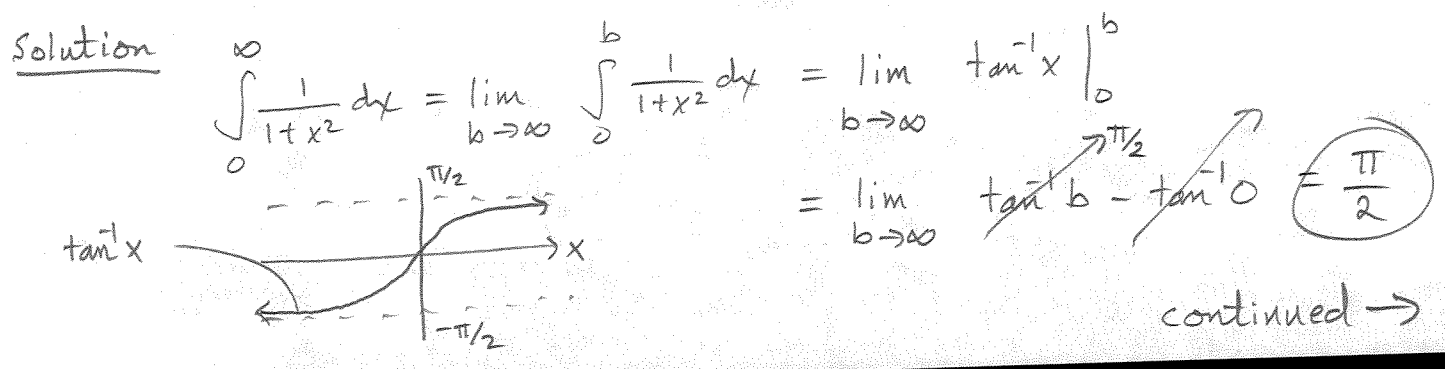 Solution ∫₀^∞ 1/(1+x²) dx = lim b→∞ ∫₀^b 1/(1+x²) dx = lim b→∞ tan⁻¹x |₀^b
= lim b→∞ tan⁻¹b - tan⁻¹0 = π/2
π/2
π/2
tan⁻¹x
x
-π/2
continued →